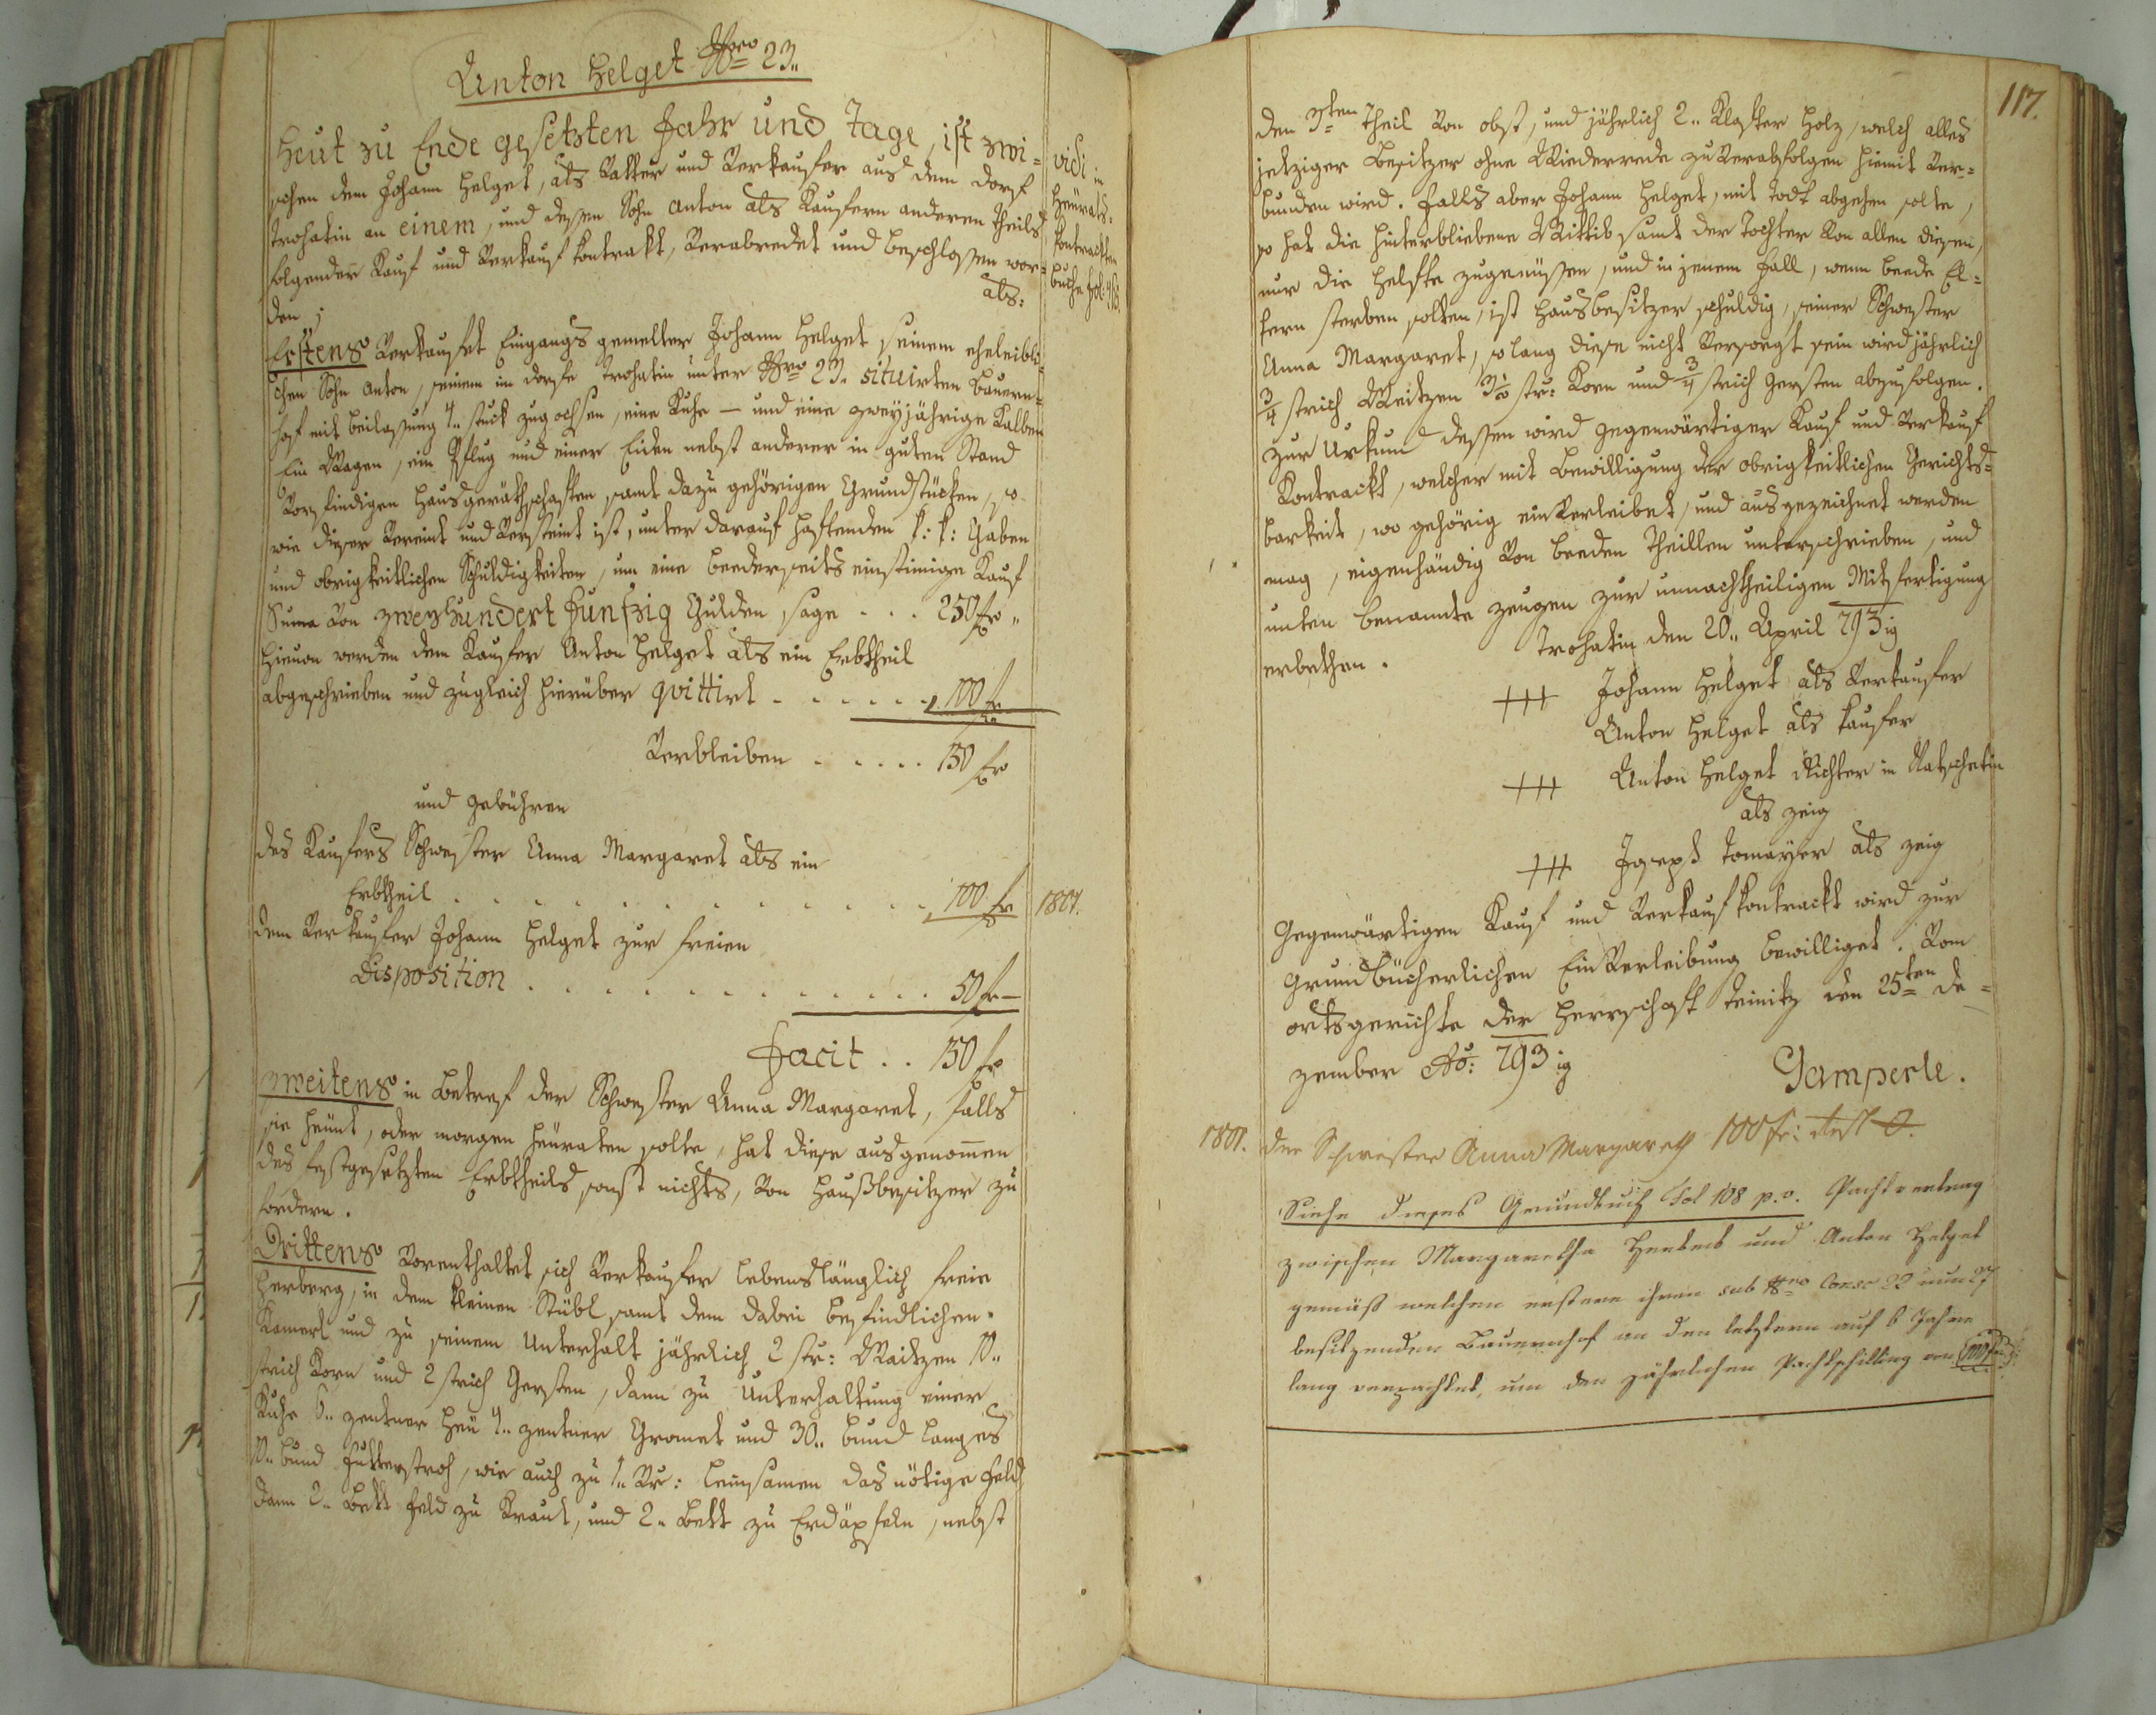 Anton Helget Nro 23.
Heut zu Ende gesetzten Jahr und Tage, ist zwi=
schen dem Johann Helget, als Vatter und Verkaufer aus dem Dorf
Trohatin an einem, und dessen Sohn Anton als Kaufern anderen Theils
folgender Kauf und Verkauf Kontrakt, Verabredet und beschlossen wor=
den; als:
vidi in
Heurats=
kontrackten
buche fol:
Erstens Verkaufet Eingangs gemelter Johann Helget, seinem eheleibli=
chen Sohn Anton, seinem im Dorfe Trohatin unter Nro 23. situirten Bauern=
hof mit beilassung 4.. stuck zugochsen, eine Kuhe – und eine zweyjährige Kalben
Ein Wagen, ein Pflug und einer Eiden nebst anderer in guten Stand
Vorfindigen Hausgeräthschaften, samt dazu gehörigen Grundstücken, so
wie dieser Vereint und Versteint ist, unter darauf haftenden k: k: Gaben
und obrigkeitlichen Schuldigkeiten, um eine beederseits einstimige Kauf
Suma Von zweyhundert funfzig Gulden, sage . . . 250 fr „
hievon werden dem Kaufer Anton Helget als ein Erbtheil
abgeschrieben und zugleich hierüber quittirt . . . . . . 100 fr
Verbleiben . . . . . 150 fr
und gebühren
des Kaufers Schwester Anna Margaret als ein
Erbtheil . . . . . . . . . . . . 100 fr 1801.
dem Verkaufer Johann Helget zur freien
Disposition . . . . . . . . . . . . 50 fr –
Facit . . 150 fr
Zweitens in Betref der Schwester Anna Margaret, falls
sie heunt, oder morgen heuraten solte, hat diese ausgenommen
des festgesetzten Erbtheils sonst nichts, Von Haußbesitzer zu
fordern.
Drittens Vorenthaltet sich Verkaufer lebenslänglich freie
Herberg, in dem kleinen Stübl samt dem dabei befindlichen
Kamerl und zu seinem Unterhalt jährlich 2 str: Waitzen 10..
strich Korn und 2 strich Gersten, dann zu Unterhaltung einer
Kuhe 6.. zentner Heu 4.. zentner Gromet und 30.. bund langes
10.. bund Futterstroh, wie auch zu 1.. Leinsamen das nötige Feld
dann 2.. Bett Feld zu Kraut, und 2.. Bett zu Erdäpfeln, nebst
117.
den 3ten Theil Von obst, und jährlich 2.. Klafter Holz, welch alles
jetziger Besitzer ohne Wiederrede zu Verabfolgen hiemit Ver=
bunden wird. Falls aber Johann Helget, mit Todt abgehen solte,
so hat die hinterbliebene Wittib samt der Tochter Von allen diesen,
nur die Helfte zugenüssen, und in jenem Fall, wenn beede El=
tern sterben solten, ist Hausbesitzer schuldig, seiner Schwester
Anna Margaret, so lang diese nicht Versorgt sein wird jährlich
3/4 strich Weitzen str: Korn und 3/4 strich Gersten abzufolgen.
Zur Urkund dessen wird gegenwärtiger Kauf und Verkauf
Kontrackt, welcher mit Bewilligung der obrigkeitlichen Gerichts=
barkeit, wo gehörig einVerleibet, und ausgezeichnet werden
mag, eigenhändig Von beeden Theillen unterschrieben, und
unten benannte zeugen zur unnachtheiligen Mitfertigung
erbethen. Trohatin den 20.. April 793ig
+++ Johann Helget als Verkaufer
Anton Helget als Kaufer
+++ Anton Helget Richter in Natschetin
als zeig
+++ Joseph Tomayer als zeig
Gegenwärtigen Kauf und Verkauf kontrackt wird zur
grundbücherlichen EinVerleibung bewilliget. Vom
ortsgerichte der Herrschaft Teinitz den 25ten De=
zember Ao: 793ig
Gamperle.
1801. der Schwester Anna Margareth 100 fr: Rest 0.
Siehe dieses Grundbuch Fol 108 p. v. Pachtvertrag
zwischen Margaretha und Anton Helget
gemäß welchen erstere ihren sub Nro Consc 22 nun 27
besitzenden Bauernhof an den letztern auf 6 Jahre
lang verpachtet, um den jährlichen Pachtschilling von